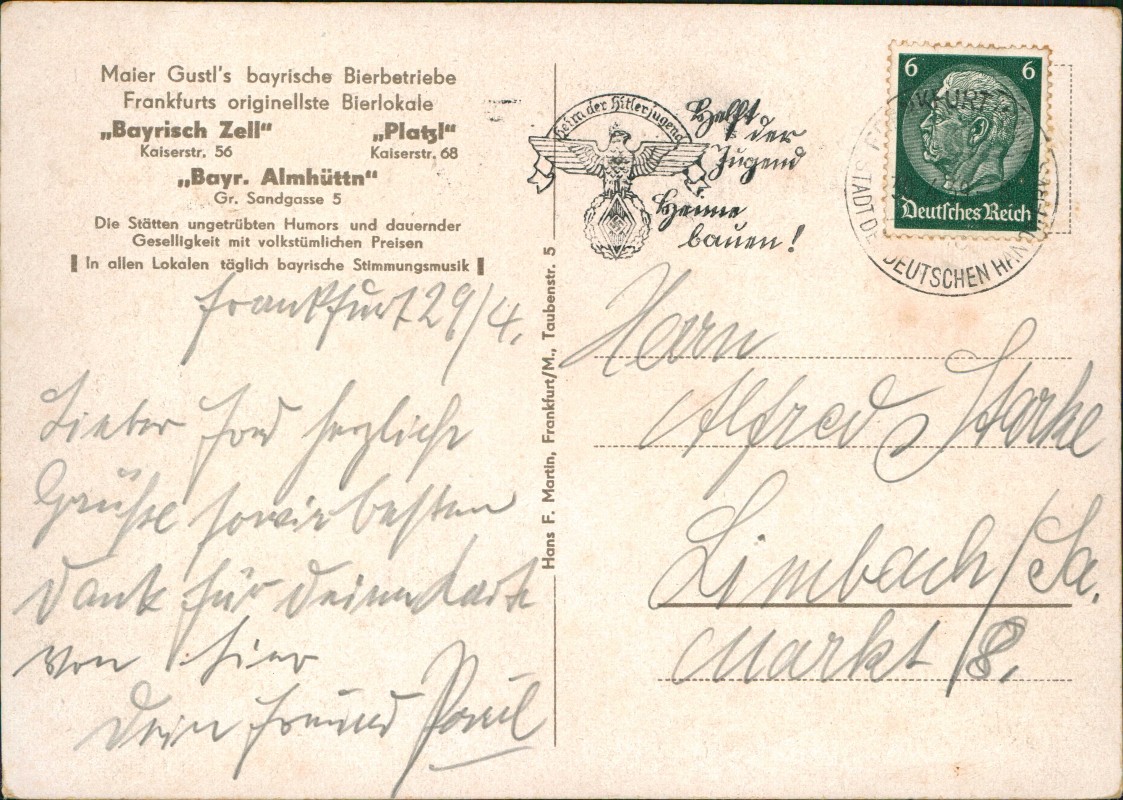 Maier Gustl's bayrische Bierbetriebe
Frankfurts originellste Bierlokale
„Bayrisch Zell“ „Platzl“
Kaiserstr. 56 Kaiserstr. 68
„Bayr. Almhüttn“
Gr. Sandgasse 5
Die Stätten ungetrübten Humors und dauernder
Geselligkeit mit volkstümlichen Preisen
In allen Lokalen täglich bayrische Stimmungsmusik
Frankfurt 29/4.
Lieber herzliche
Grüße sowie besten
Dank für Deine Karte
von hier
Dein Freund Paul
Hans F. Martin, Frankfurt/M., Taubenstr. 5
Heim der Hitlerjugend
Helft
der
Jugend
Heime
bauen!
6 6
Deutsches Reich
STADT DE DEUTSCHEN HAN
Herrn
Alfred Starke
Limbach/Sa.
Markt 8.